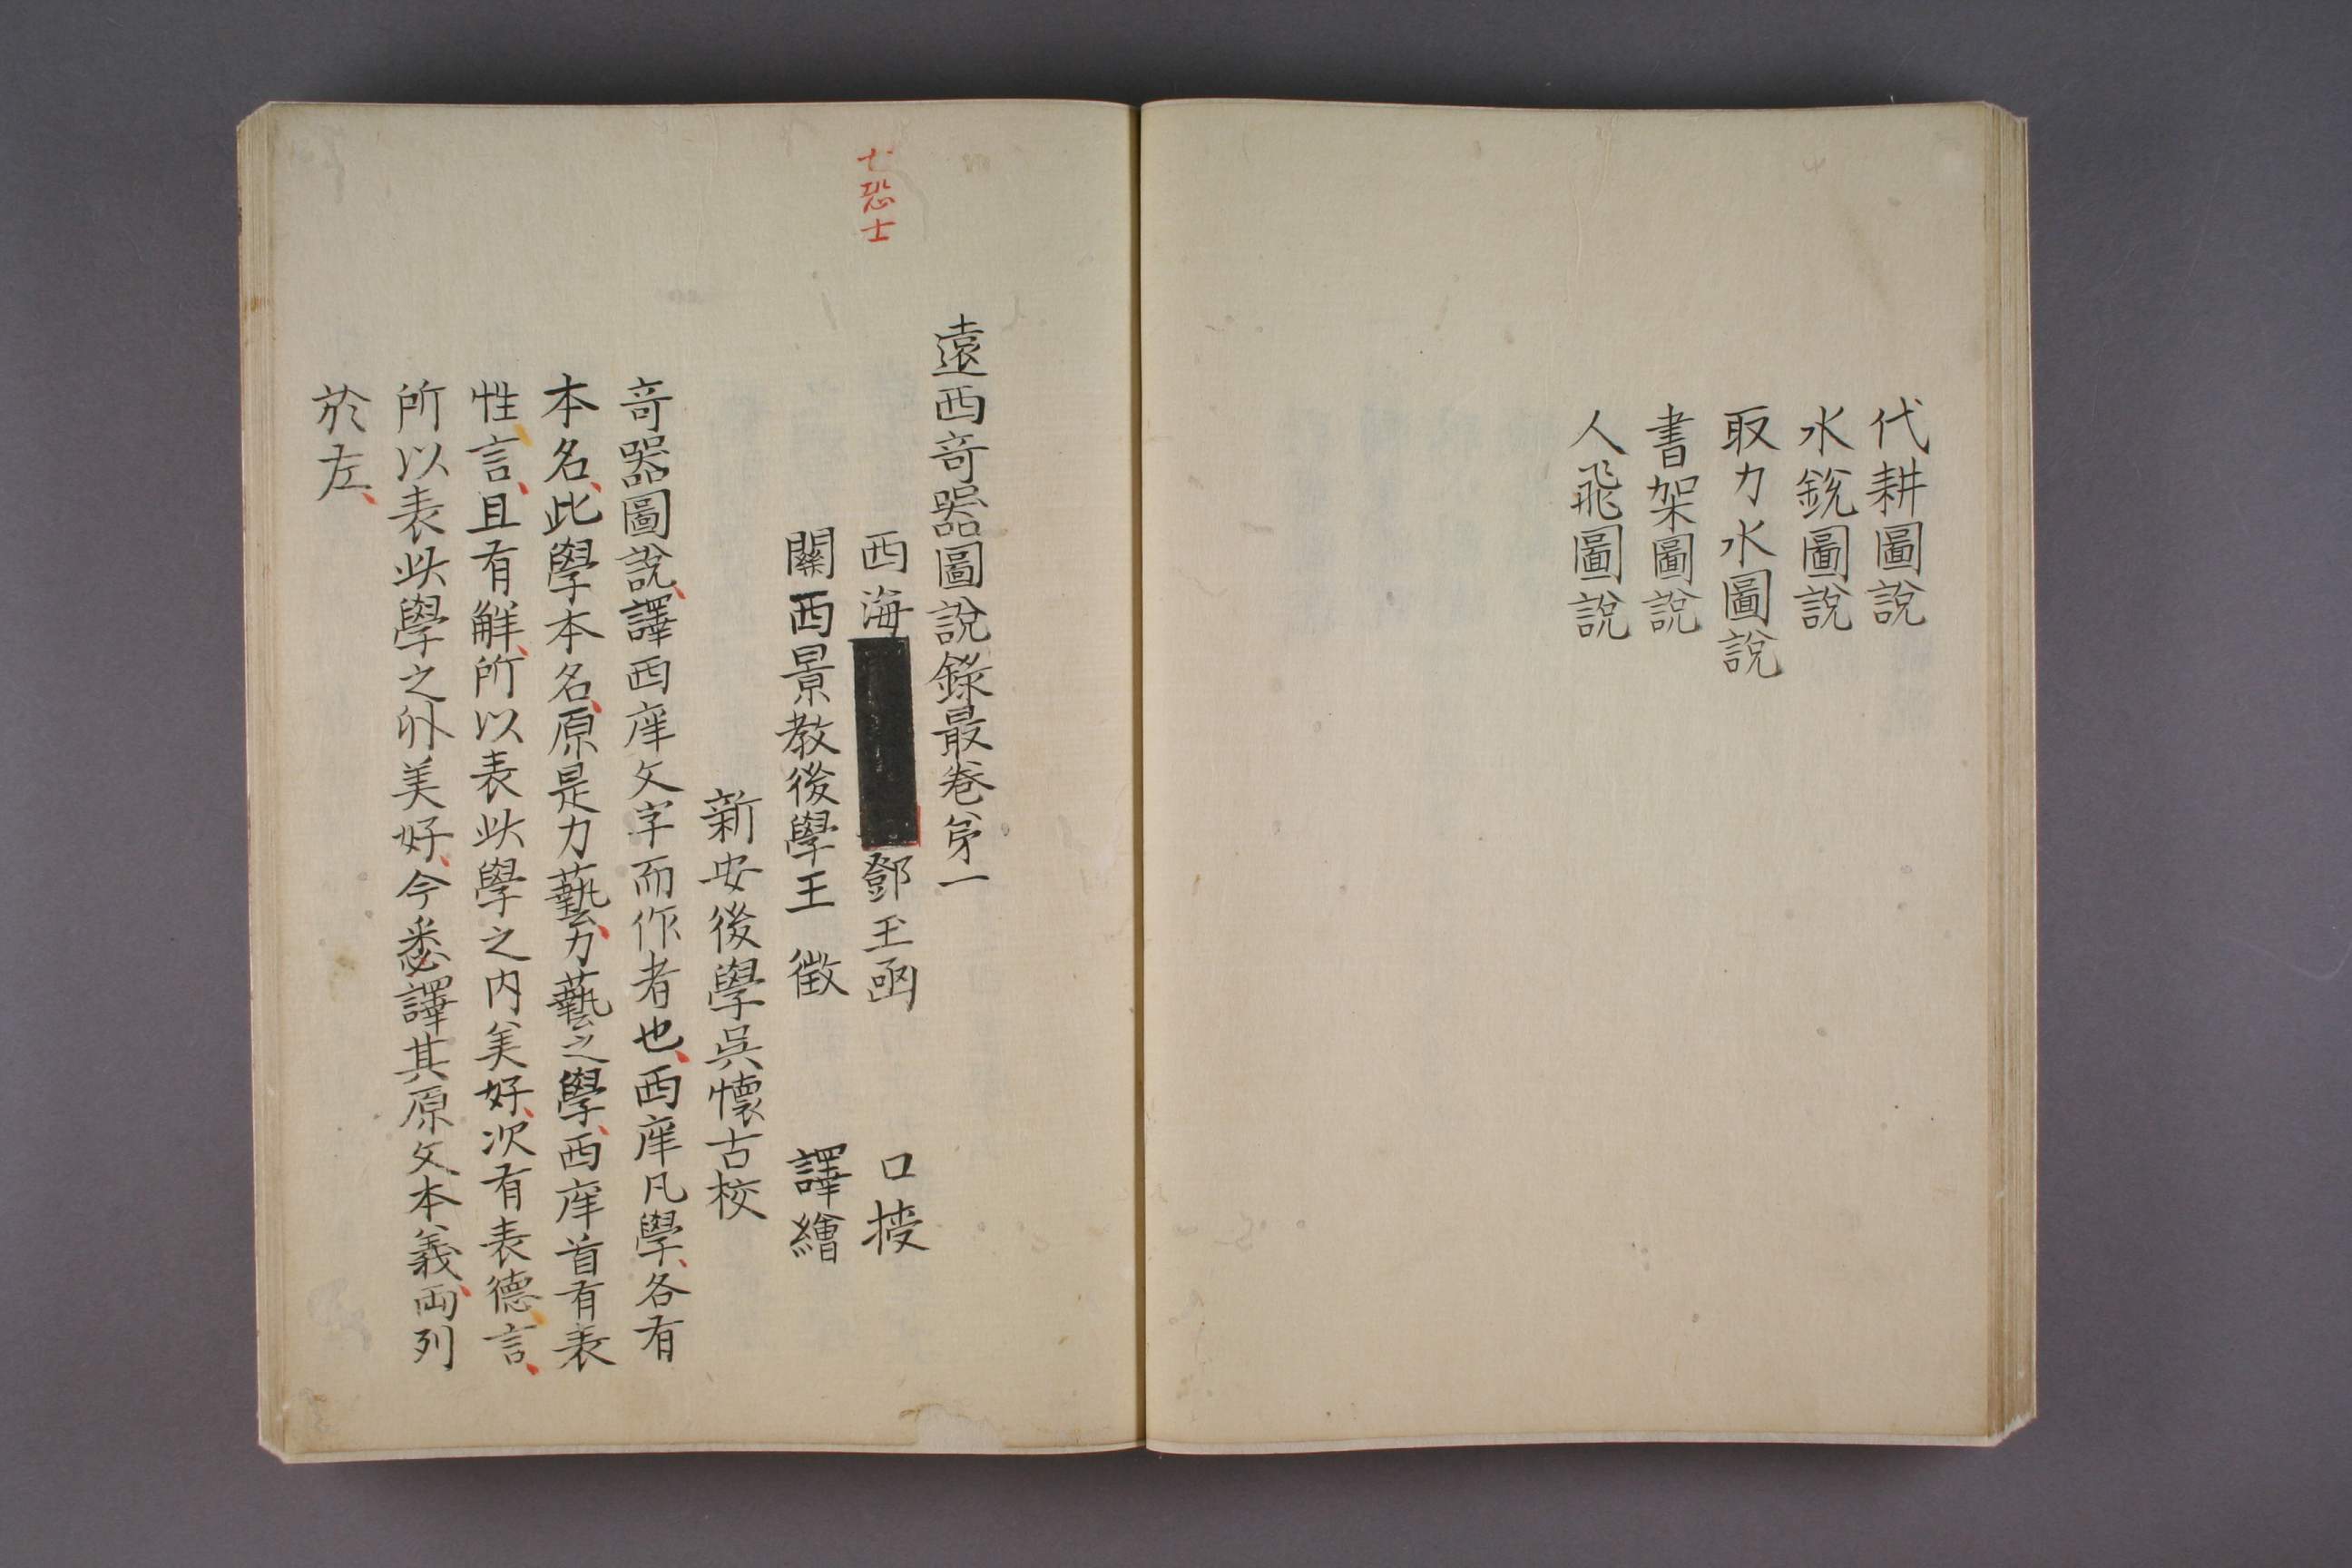 代耕圖說
水銃圖說
取力水圖說
書架圖說
人飛圖說
七恐士
遠西奇器圖說錄最卷第一
西海 鄧玉函 口授
關西景教後學王 徵 譯繪
新安後學吳懷古校
奇器圖說、譯西庠文字而作者也、西庠凡學、各有
本名、此學本名、原是力藝、力藝之學、西庠首有表
性、言、且有解、所以表此學之內美好、次有表德、言、
所以表此學之外美好、今悉譯其原文本義、兩列
於左、